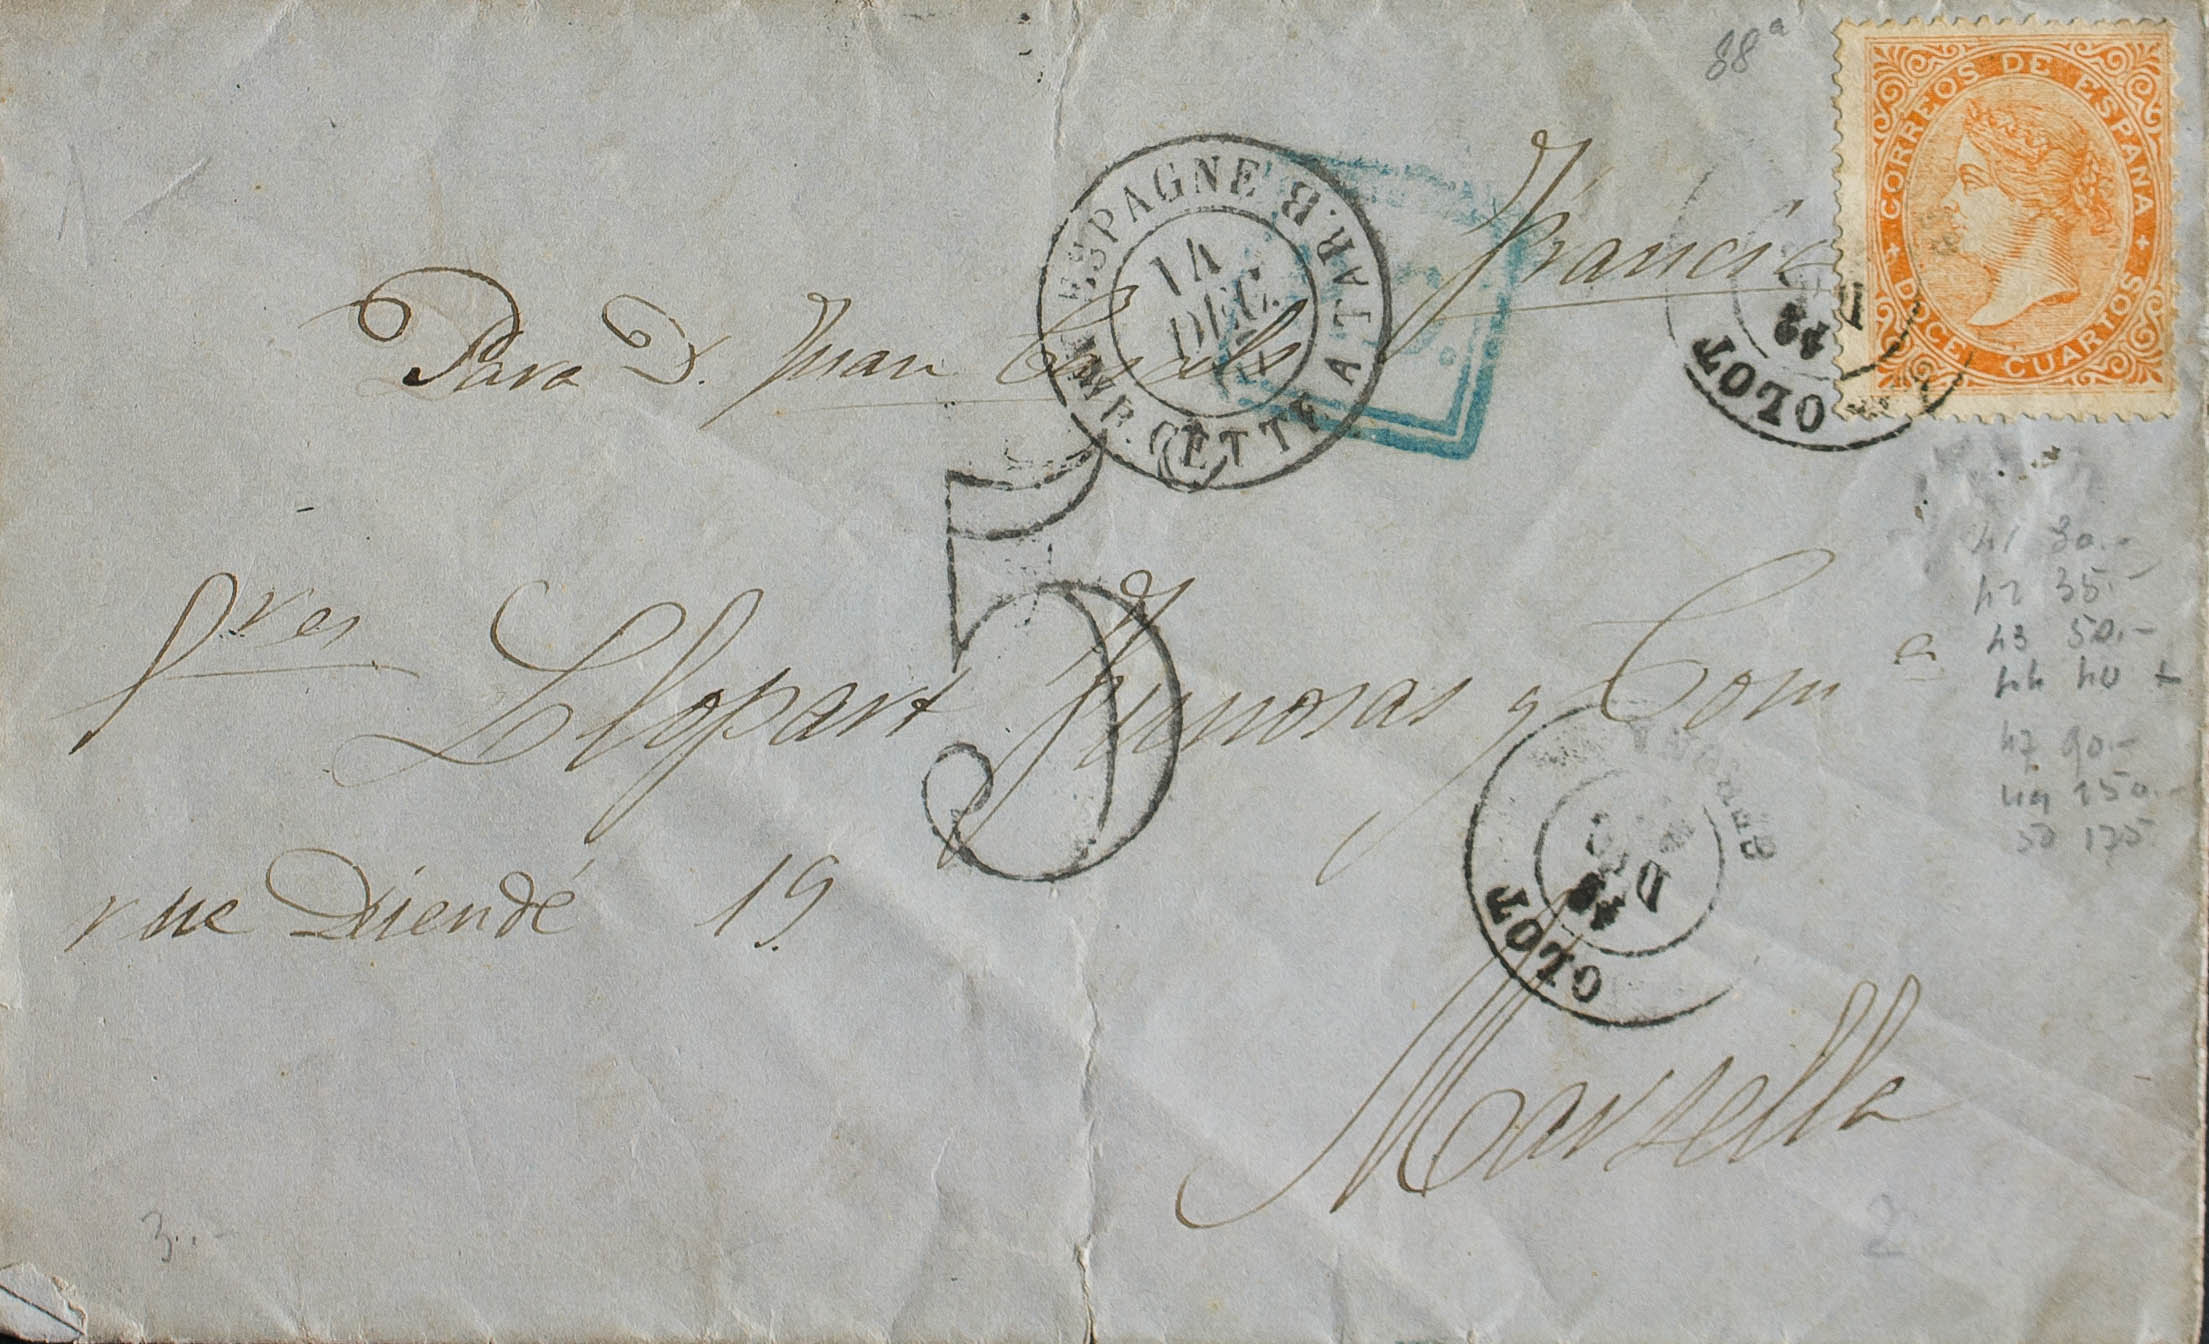 88ª
CORREOS DE ESPAÑA
DOCE CUARTOS
Francia
ESPAGNE B. AR. TAR. AMB. CETTE A
14
DEC.
Para D. Juan
OLOT
12
Sres Llopart y Comª
5
41 30.-
42 35.-
43 50.-
44 40
47 90.-
49 150.-
50 175
rue Diendé 19
OLOT
Marsella
3..-
2